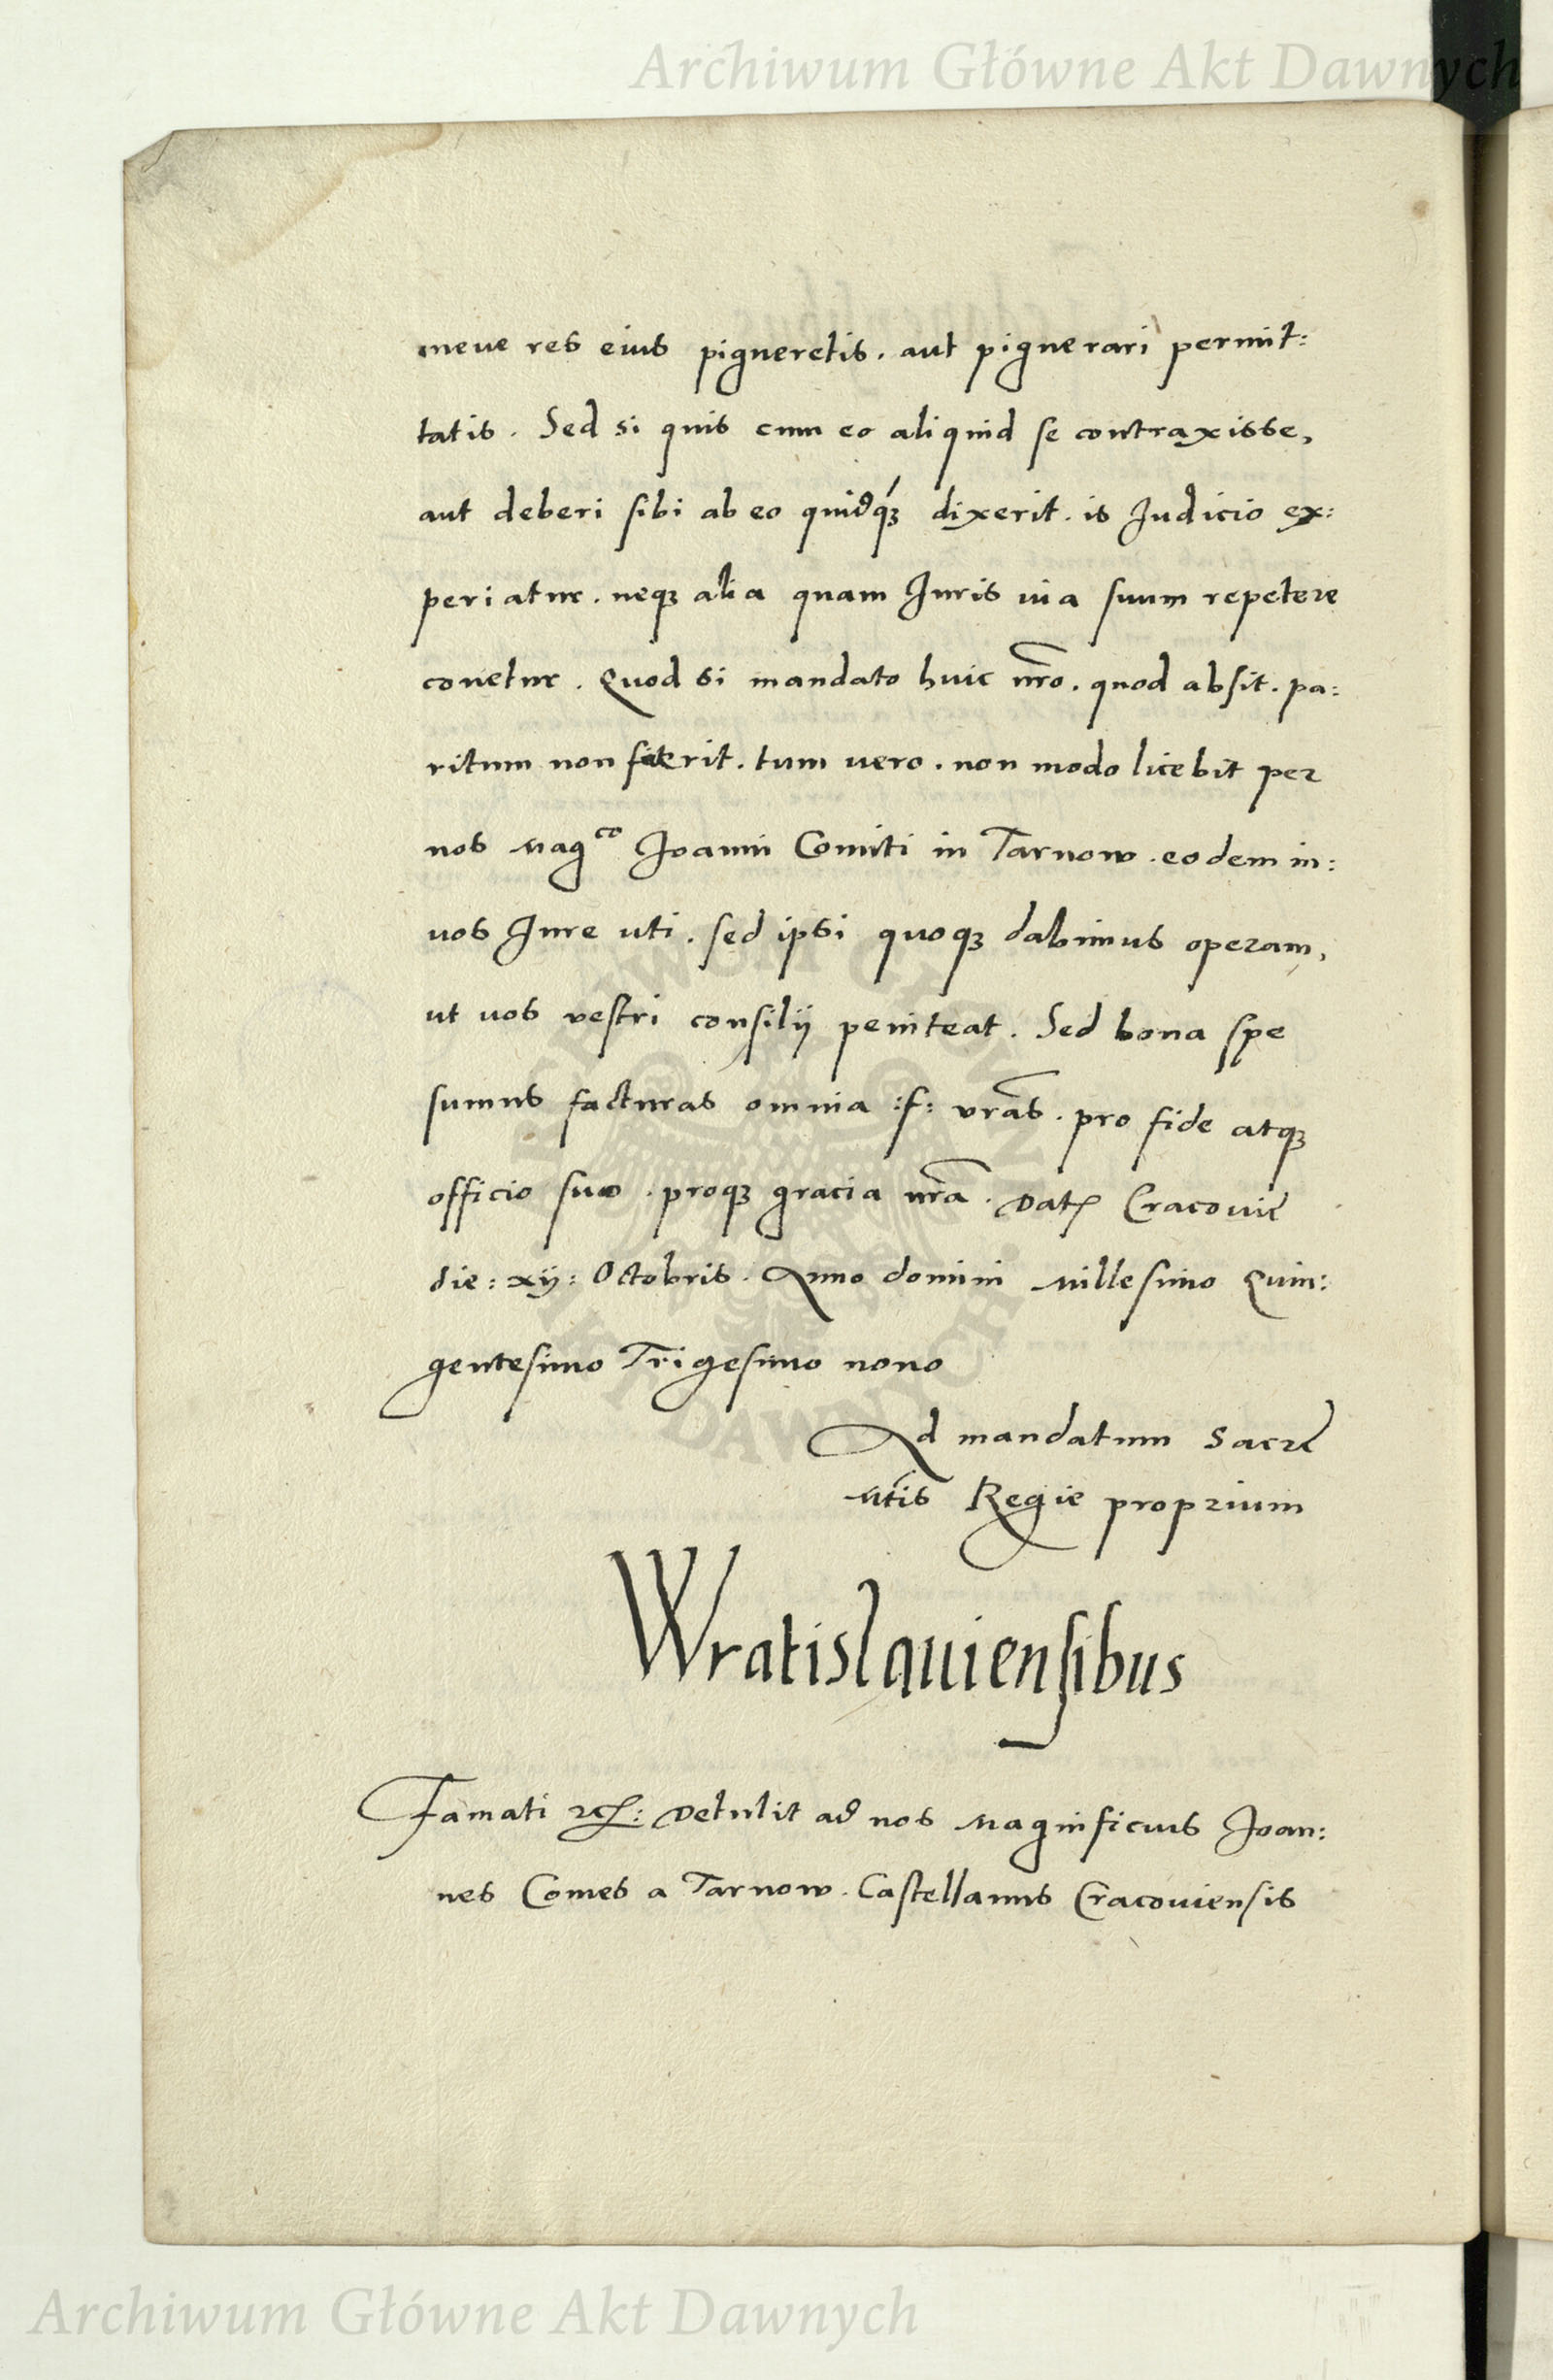 Archiwum Główne Akt Dawnych
meue res eius pigneretis. aut pignerari permit:
tatis. Sed si quis cum eo aliquid se contraxisse,
aut deberi sibi ab eo quidqꝫ dixerit. is Iudicio ex:
periatur. neqꝫ alia quam Iuris uia suum repetere
conetur. Quod si mandato huic nr̃o. quod absit. pa:
ritum non fuerit. tum uero. non modo licebit per
nos Magco Joanni Comiti in Tarnow. eodem in:
uos Iure uti. sed ipsi quoqꝫ dabimus operam,
ut uos vestri consilij peniteat. Sed bona spe
sumus facturas omnia :f: vr̃as. pro fide atqꝫ
officio suo. proqꝫ gracia nr̃a. Dat Cracouie
die: xij: Octobris. Anno domini Millesimo Quin:
gentesimo Trigesimo nono
Ad mandatum Sacre
Mtis Regie proprium
Wratislauiensibus
Famati rc: Detulit ad nos Magnificus Joan:
nes Comes a Tarnow. Castellanus Cracouiensis
Archiwum Główne Akt Dawnych